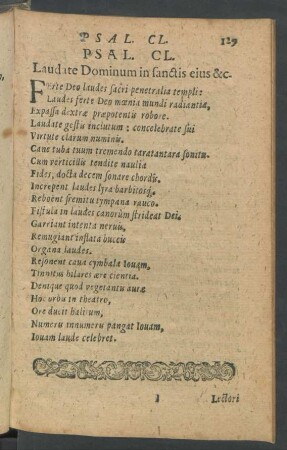 PSAL. CL.
129
PSAL. CL.
Laudate Dominum in sanctis eius &c.
FErte Deo laudes sacri penetralia templi:
Laudes ferte Deo mœnia mundi radiantia,
Expassa dextræ præpotentis robore.
Laudate gestis inclutum: concelebrate sui
Virtute clarum numinis.
Cane tuba tuum tremendo taratantara sonitu.
Cum verticillis tendite nablia
Fides, docta decem sonare chordis.
Increpent laudes lyra barbitosq́;
Reboënt fremitu tympana rauco.
Fistula in laudes canorùm strideat Dei.
Garriant intenta nervis,
Remugiant inflata buccis
Organa laudes.
Resonent caua cymbala Iouam,
Tinnitus hilares ære cientia.
Denique quod vegetantis auræ
Hoc orbis in theatro,
Ore ducit halitum,
Numeris innumeris pangat Iouam,
Iouam laude celebret.
I
Lectori